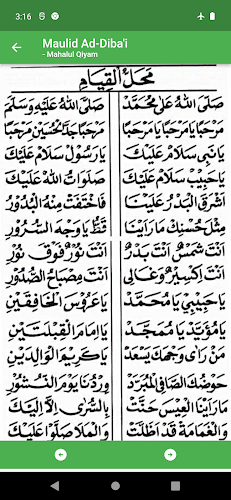 3:16
Maulid Ad-Diba'i
- Mahalul Qiyam
مَحَلُّ الْقِيَامِ
صَلَّى اللهُ عَلَى مُحَمَّدْ صَلَّى اللهُ عَلَيْهِ وَسَلَّمَ
مَرْحَبًا يَا مَرْحَبًا يَا مَرْحَبًا مَرْحَبًا جَدَّ الْحُسَيْنِ مَرْحَبًا
يَا نَبِى سَلَامٌ عَلَيْكَ يَا رَسُولْ سَلَامٌ عَلَيْكَ
يَا حَبِيبْ سَلَامٌ عَلَيْكَ صَلَوَاتُ اللهْ عَلَيْكَ
اَشْرَقَ الْبَدْرُ عَلَيْنَا فَاخْتَفَتْ مِنْهُ الْبُدُوْرُ
مِثْلَ حُسْنِكْ مَا رَاَيْنَا قَطُّ يَا وَجْهَ السُّرُوْرِ
اَنْتَ شَمْسٌ اَنْتَ بَدْرٌ اَنْتَ نُوْرٌ فَوْقَ نُوْرِ
اَنْتَ اِكْسِيْرٌ وَغَالِى اَنْتَ مِصْبَاحُ الصُّدُوْرِ
يَا حَبِيْبِى يَا مُحَمَّدْ يَا عَرُوْسَ الْخَافِقَيْنِ
يَا مُؤَيَّدْ يَا مُمَجَّدْ يَا اِمَامَ الْقِبْلَتَيْنِ
مَنْ رَاَى وَجْهَكَ يَسْعَدْ يَا كَرِيْمَ الْوَالِدَيْنِ
حَوْضُكَ الصَّافِى الْمُبَرَّدْ وِرْدُنَا يَوْمَ النُّشُوْرِ
مَا رَاَيْنَا الْعِيْسَ حَنَّتْ بِالسُّرٰى اِلَّا اِلَيْكَ
وَالْغَمَامَةْ قَدْ اَظَلَّتْ وَالْمَلَا صَلَّوْا عَلَيْكَ